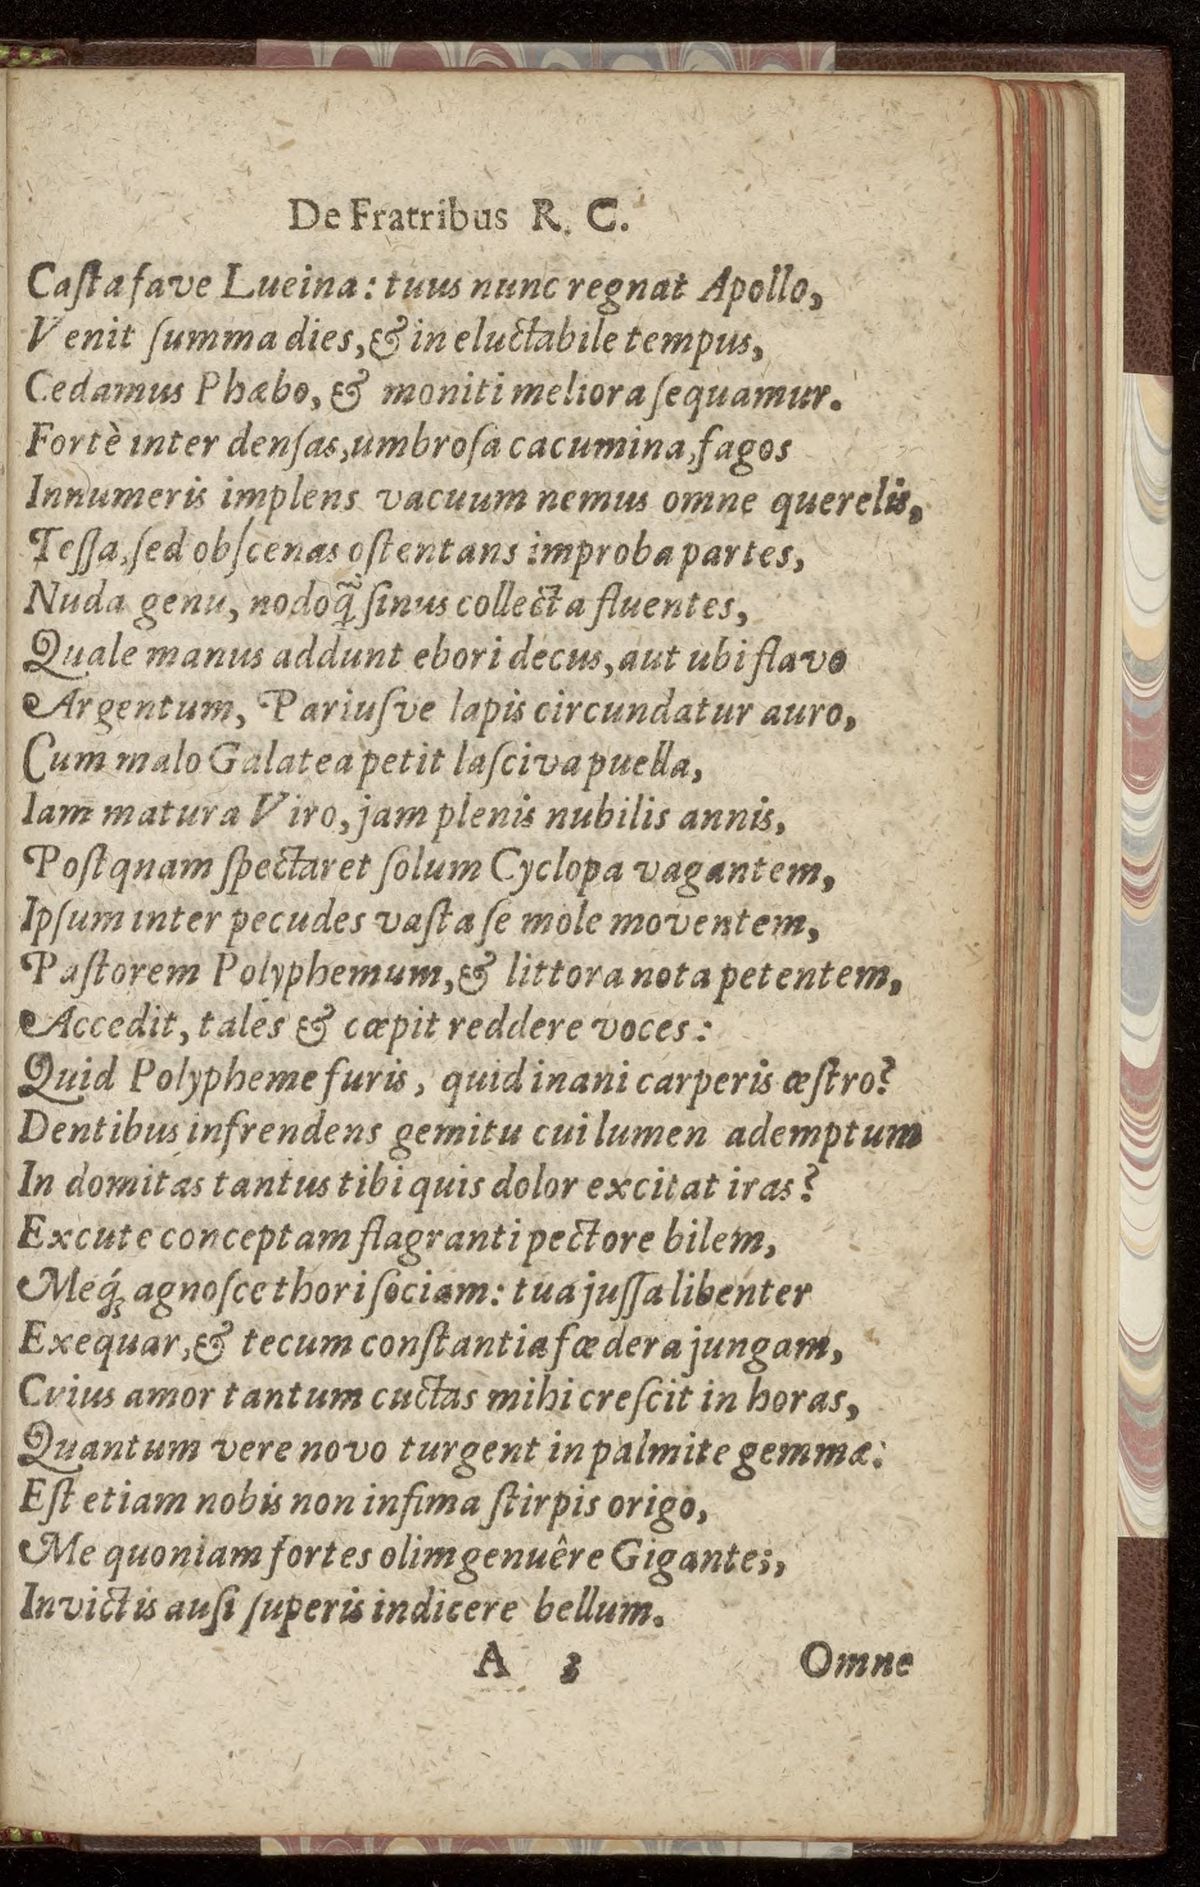 De Fratribus R. C.
Casta fave Lueina: tuus nunc regnat Apollo,
Venit summa dies, & in eluctabile tempus,
Cedamus Phæbo, & moniti meliora sequamur.
Fortè inter densas, umbrosa cacumina, fagos
Innumeris implens vacuum nemus omne querelis,
Tessa, sed obscenas ostentans improba partes,
Nuda genu, nodoq̃; sinus collecta fluentes,
Quale manus addunt ebori decus, aut ubi flavo
Argentum, Pariusve lapis circundatur auro,
Cum malo Galatea petit lasciva puella,
Iam matura Viro, jam plenis nubilis annis,
Postqnam spectaret solum Cyclopa vagantem,
Ipsum inter pecudes vasta se mole moventem,
Pastorem Polyphemum, & littora nota petentem,
Accedit, tales & cæpit reddere voces:
Quid Polypheme furis, quid inani carperis æstro?
Dentibus infrendens gemitu cui lumen ademptum
In domitas tantus tibi quis dolor excitat iras?
Excute conceptam flagranti pectore bilem,
Meq́; agnosce thori sociam: tua jussa libenter
Exequar, & tecum constantia fœdera jungam,
Cvius amor tantum cuctas mihi crescit in horas,
Quantum vere novo turgent in palmite gemmæ:
Est etiam nobis non infima stirpis origo,
Me quoniam fortes olim genuêre Gigantes,
Invictis ausi superis indicere bellum.
A 3 Omne